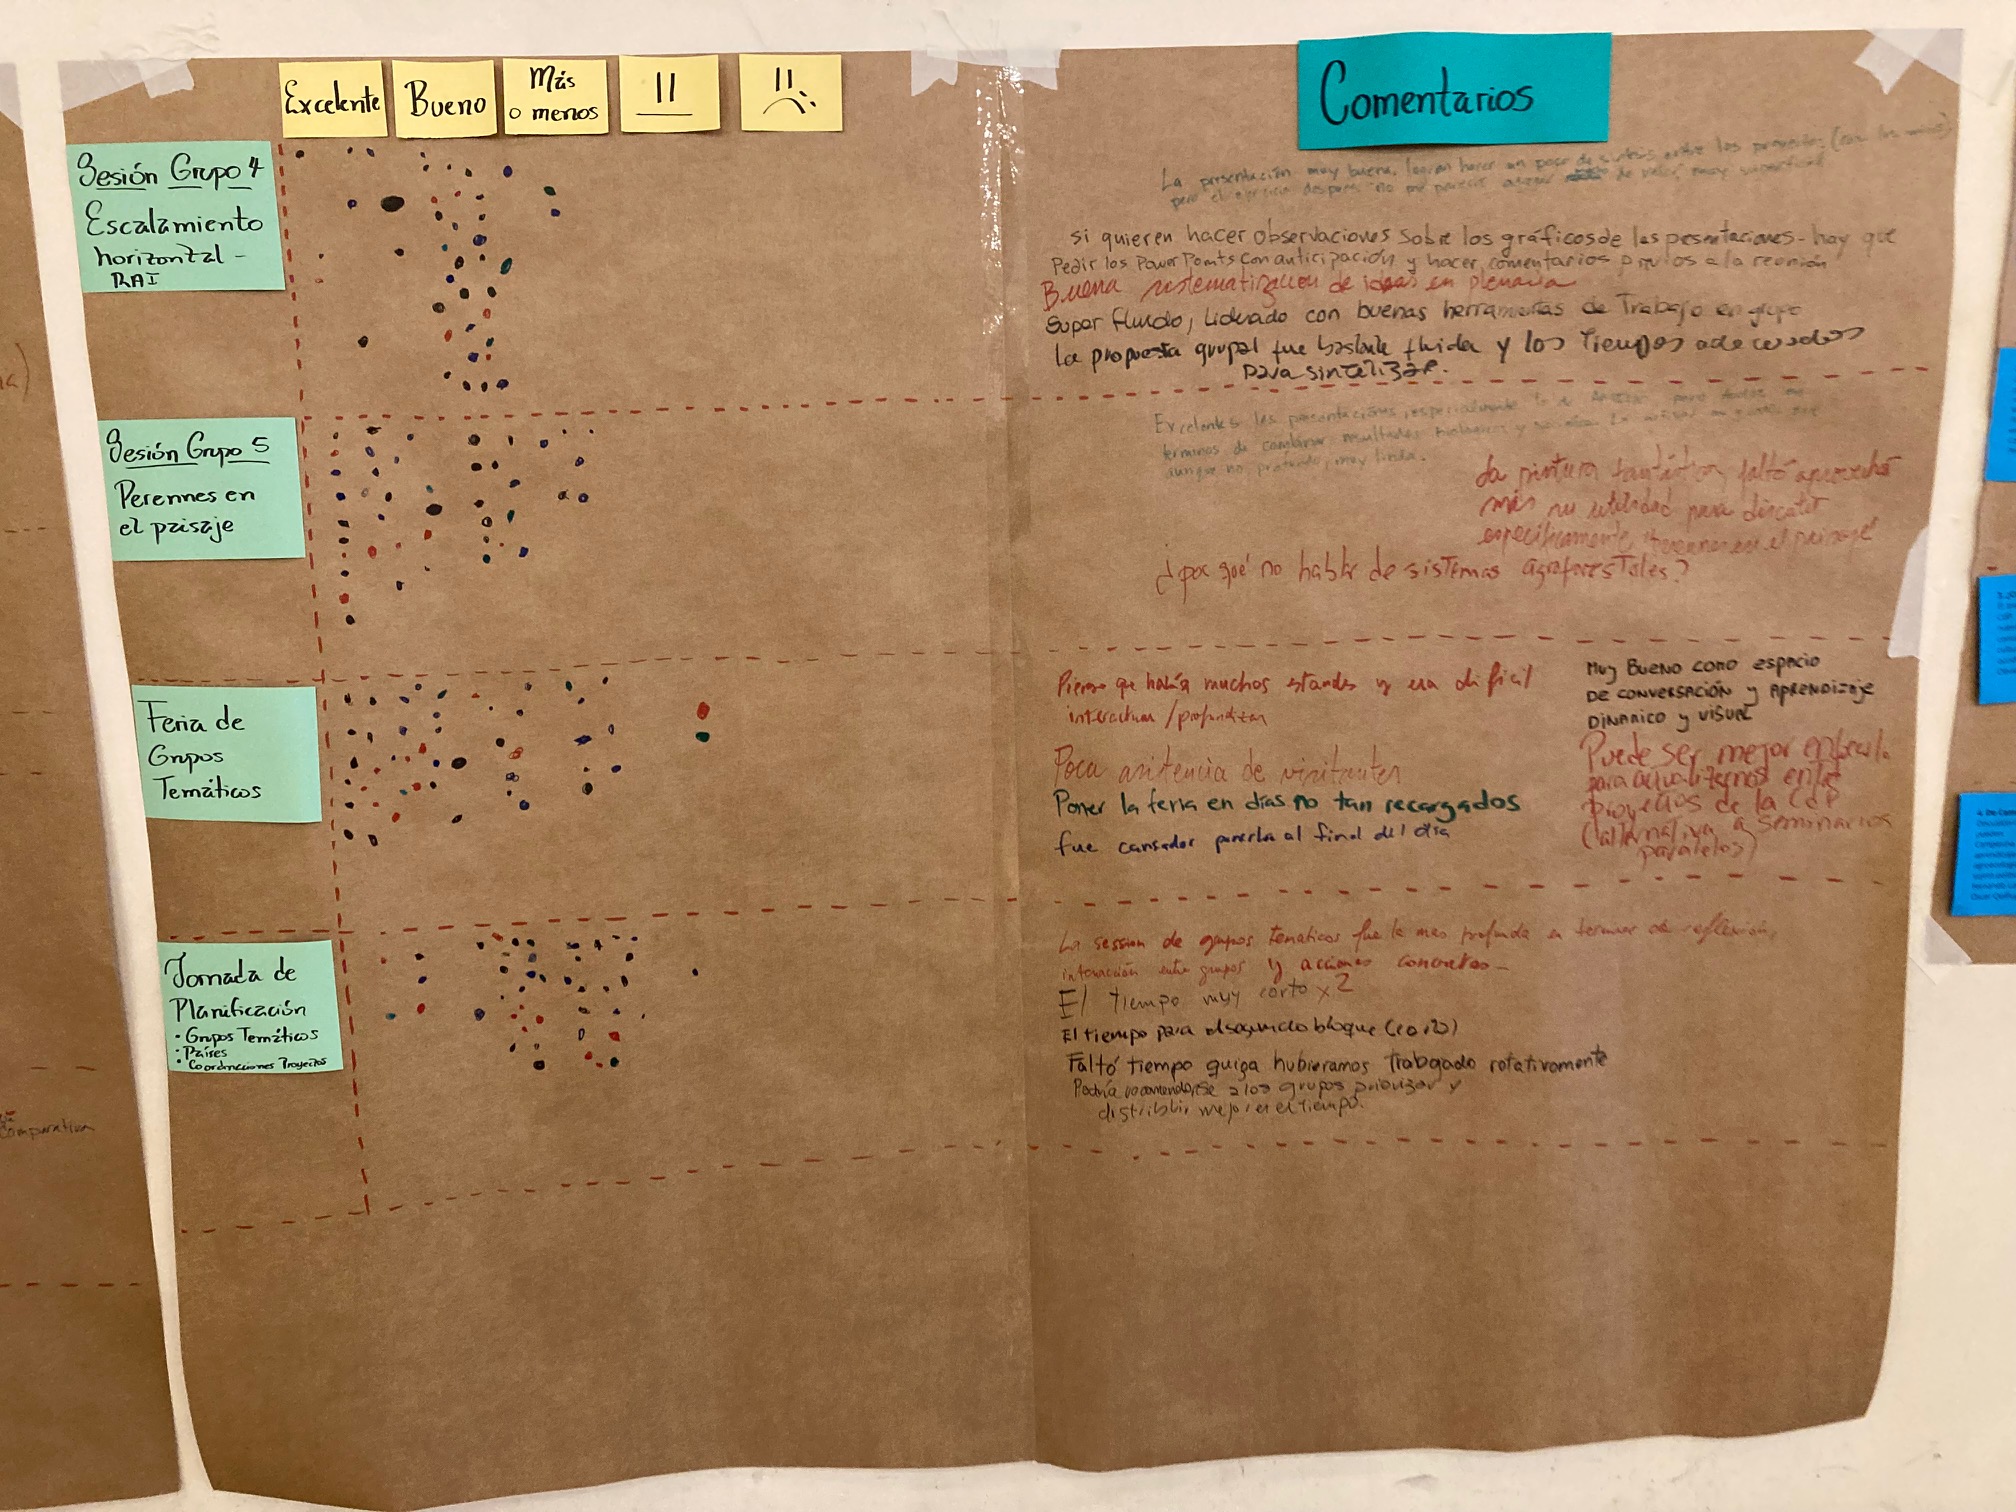 Excelente
Bueno
Más
o menos
Comentarios
Sesión Grupo 4
Escalamiento
horizontal -
RAI
La presentación muy buena, logran hacer un poco de síntesis entre los proyectos
pero el ejercicio después no me pareció agregar de valor, muy superficial
si quieren hacer observaciones sobre los gráficos de las presentaciones - hay que
Pedir los PowerPoints con anticipación y hacer comentarios previos a la reunión
Buena sistematización de ideas en plenaria
Super fluido, liderado con buenas herramientas de Trabajo en grupo
la propuesta grupal fue bastante fluida y los Tiempos adecuados
para sintetizar.
Sesión Grupo 5
Perennes en
el paisaje
Excelentes las presentaciones, especialmente
términos de combinar resultados biológicos y
aunque no profundo, muy linda.
La pintura fantástica, faltó aprovechar
más su utilidad para discutir
específicamente perennes en el paisaje
¿por qué no hablar de sistemas agroforestales?
Feria de
Grupos
Temáticos
Pienso que había muchos estandes y era difícil
interactuar / profundizar
Poca asistencia de visitantes
Poner la feria en días no tan recargados
fue cansador ponerla al final del día
MUY BUENO COMO ESPACIO
DE CONVERSACIÓN Y APRENDIZAJE
DINAMICO Y VISUAL
Puede ser mejor
para actualizarnos entre
proyectos de la CdP
(alternativa a seminarios
paralelos)
Jornada de
Planificación
• Grupos Temáticos
• Países
• Coordinaciones Proyectos
La session de grupos tematicos fue la mas profunda en terminos de reflexión,
interacción entre grupos y acciones concretas -
El tiempo muy corto x2
El tiempo para el segundo bloque (corto)
Faltó tiempo quiza hubieramos trabajado rotativamente
Podría recomendarse a los grupos priorizar y
distribuir mejor el tiempo.
Comparativa